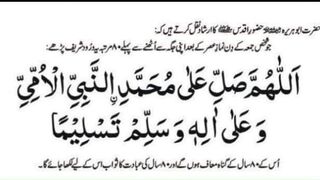 حضرت ابو ہریرہ حضور اقدس ﷺ کا ارشاد نقل کرتے ہیں کہ:
جو شخص جمعہ کے دن نماز عصر کے بعد اپنی جگہ سے اٹھنے سے پہلے ۸۰ مرتبہ یہ درود شریف پڑھے:
اَللّٰهُمَّ صَلِّ عَلٰى مُحَمَّدِ النَّبِيِّ الْاُمِّيِّ
وَ عَلٰى اٰلِهٖ وَ سَلِّمْ تَسْلِيْمًا
اُس کے ۸۰ سال کے گناہ معاف ہوں گے اور ۸۰ سال کی عبادت کا ثواب اس کے لیے لکھا جائے گا۔